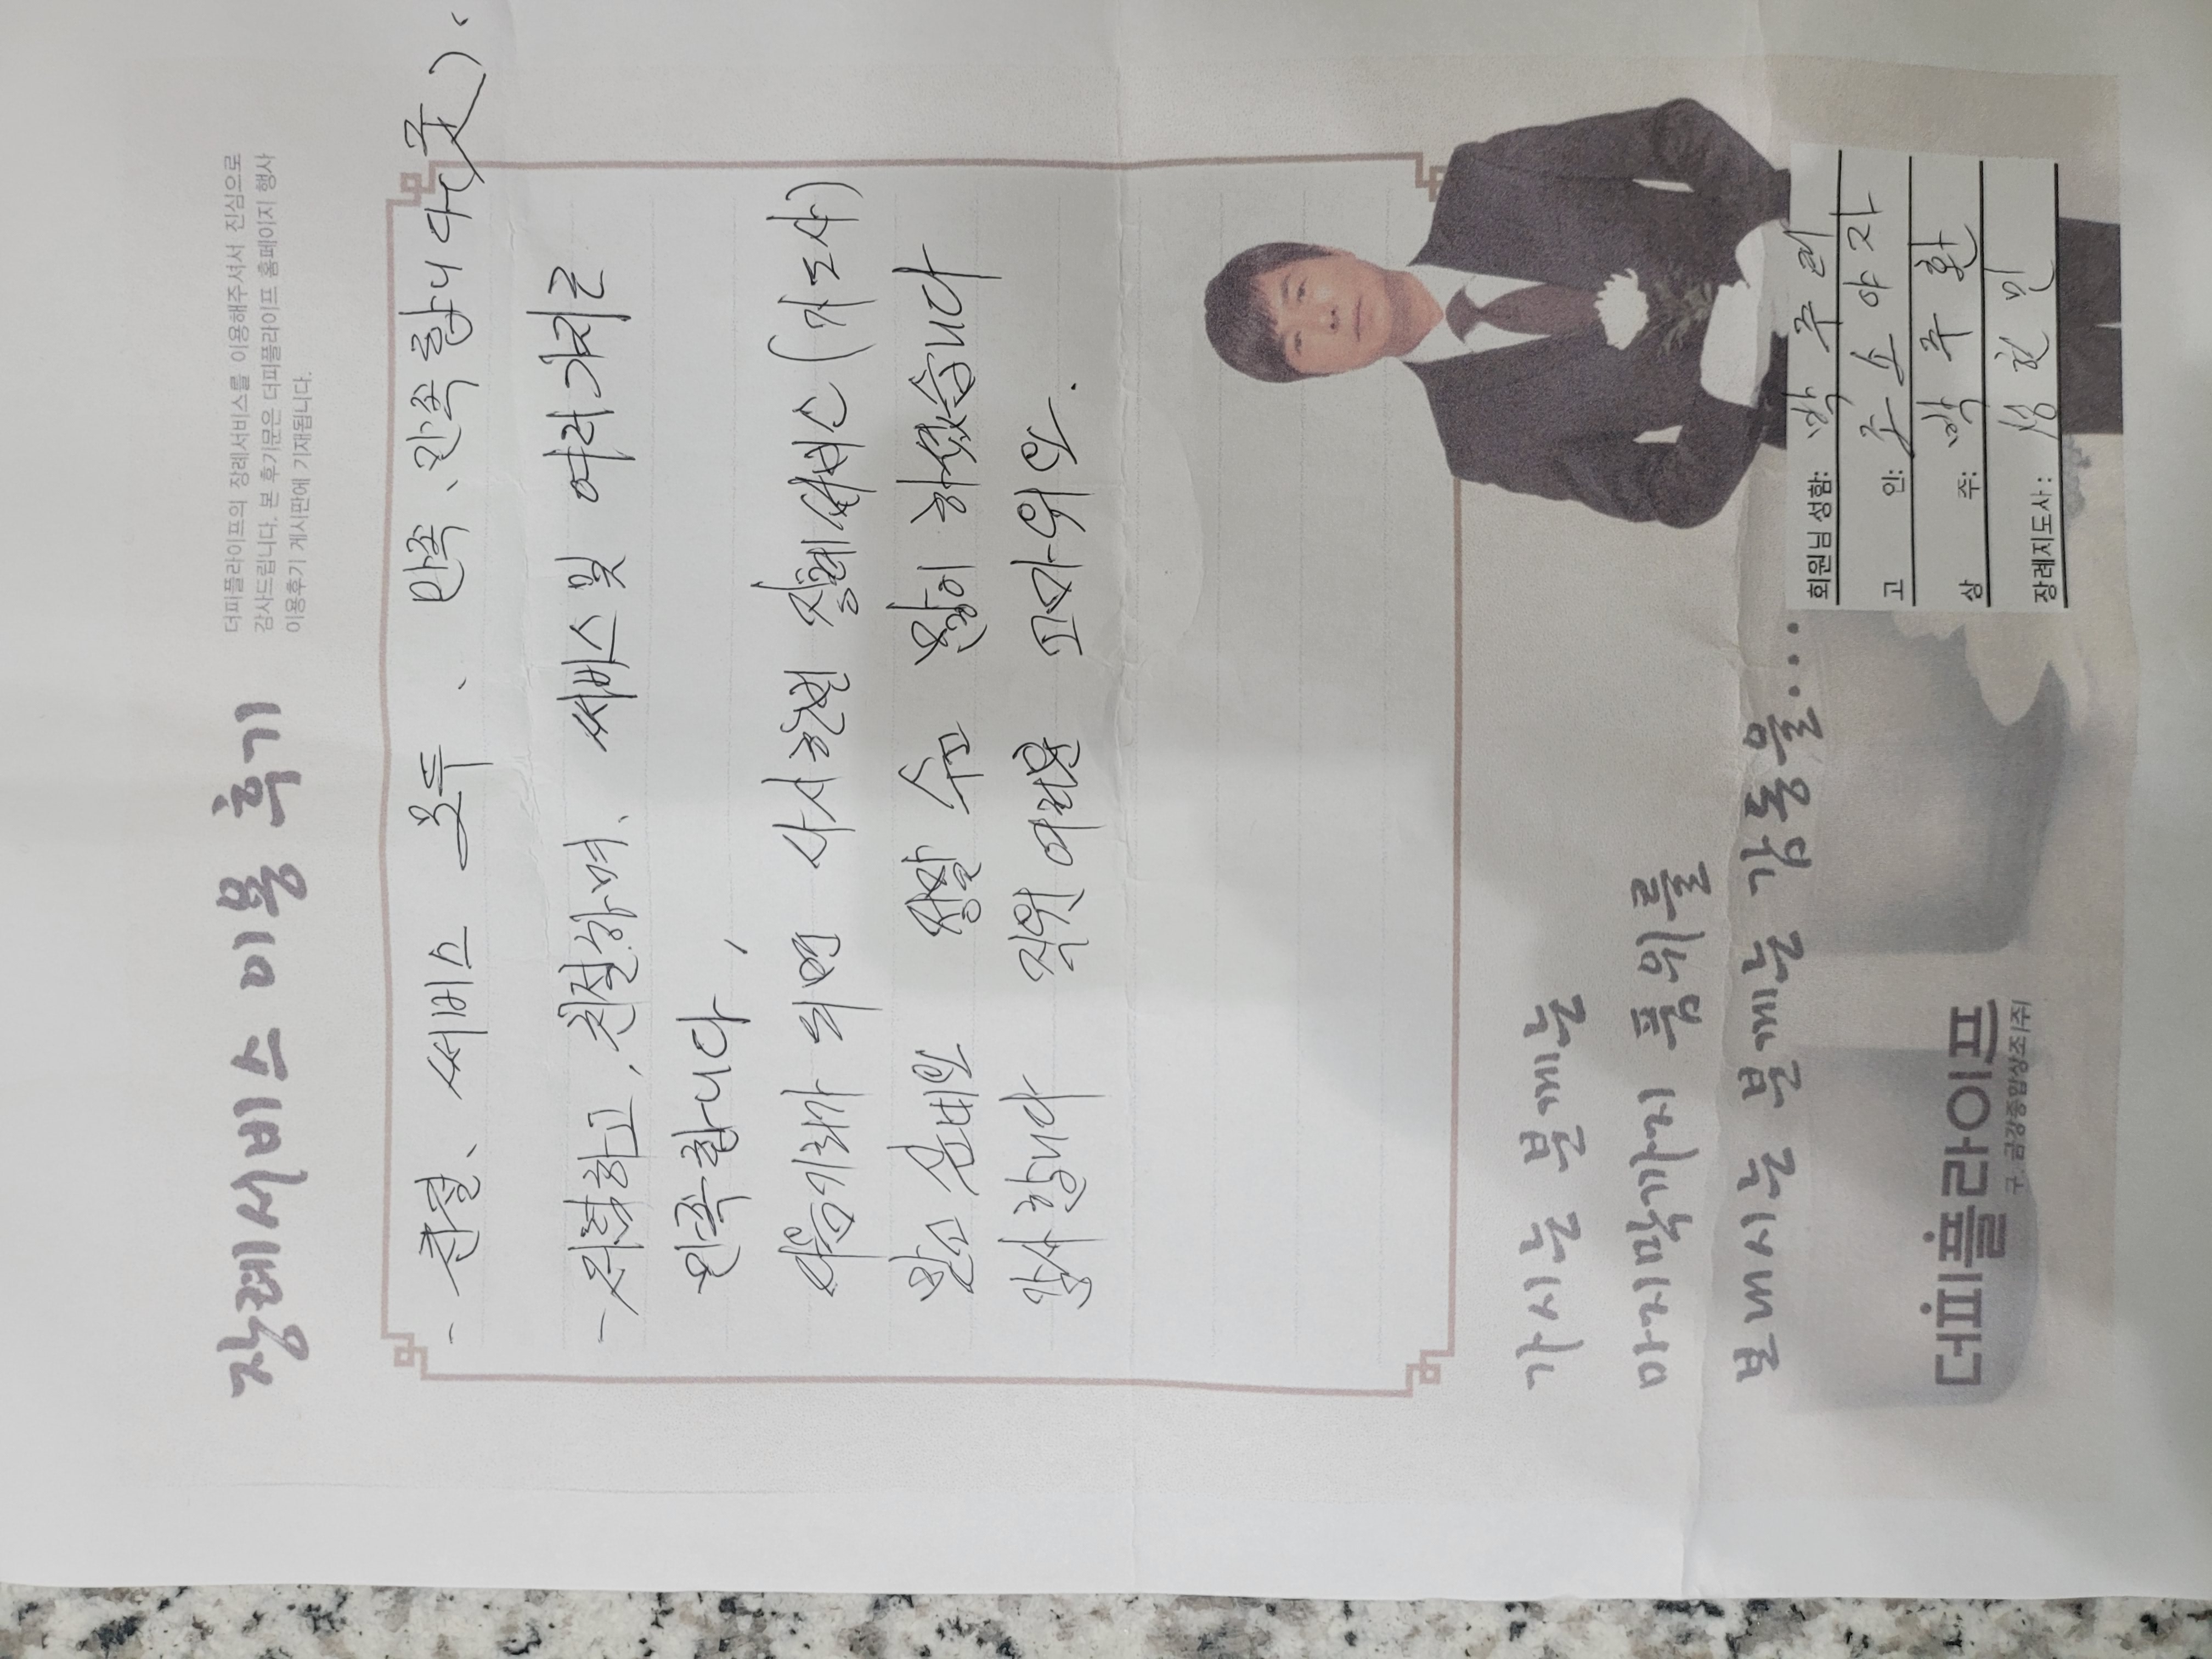 장례서비스 이용 후기
더피플라이프의 장례서비스를 이용해주셔서 진심으로
감사드립니다. 본 후기문은 더피플라이프 홈페이지 행사
이용후기 게시판에 기재됩니다.
- 친절、써비스 모두、만족、만족합니다
- 하고, 친절하며、써비스 및 여러가지로
만족합니다,
다음기회가 되면 장례써비스 (지도사)
수고 많이 하였습니다
감사합니다 직원 여러분 고마워요.
가시는 분께는
마지막까지 품위를
보내시는 분께는 감동을...
회원님 성함: 박주
고 인: 조소야지
상 주: 박주환
장례지도사: 성현민
더피플라이프
구. 금강종합상조(주)